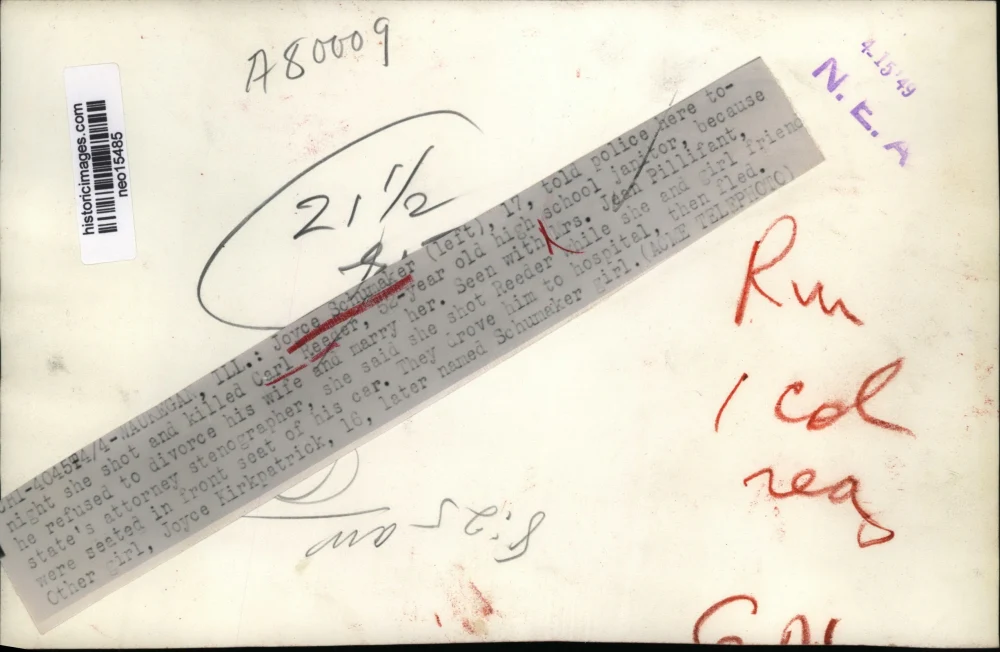 A80009
4-15'49
N. E. A
historicimages.com
neo15485
21 1/2
8.
CHI-404594/4-WAUKEGAN, ILL.: Joyce Schumaker (left), 17, told police here to-
night she shot and killed Carl Reeder, 58-year old high school janitor, because
he refused to divorce his wife and marry her. Seen with Mrs. Jean Pillifant,
state's attorney stenographer, she said she shot Reeder while she and girl friend
were seated in front seat of his car. They drove him to hospital, then fled.
Other girl, Joyce Kirkpatrick, 16, later named Schumaker girl. (ACME TELEPHOTO)
8:25 am
Run
1 col
reg